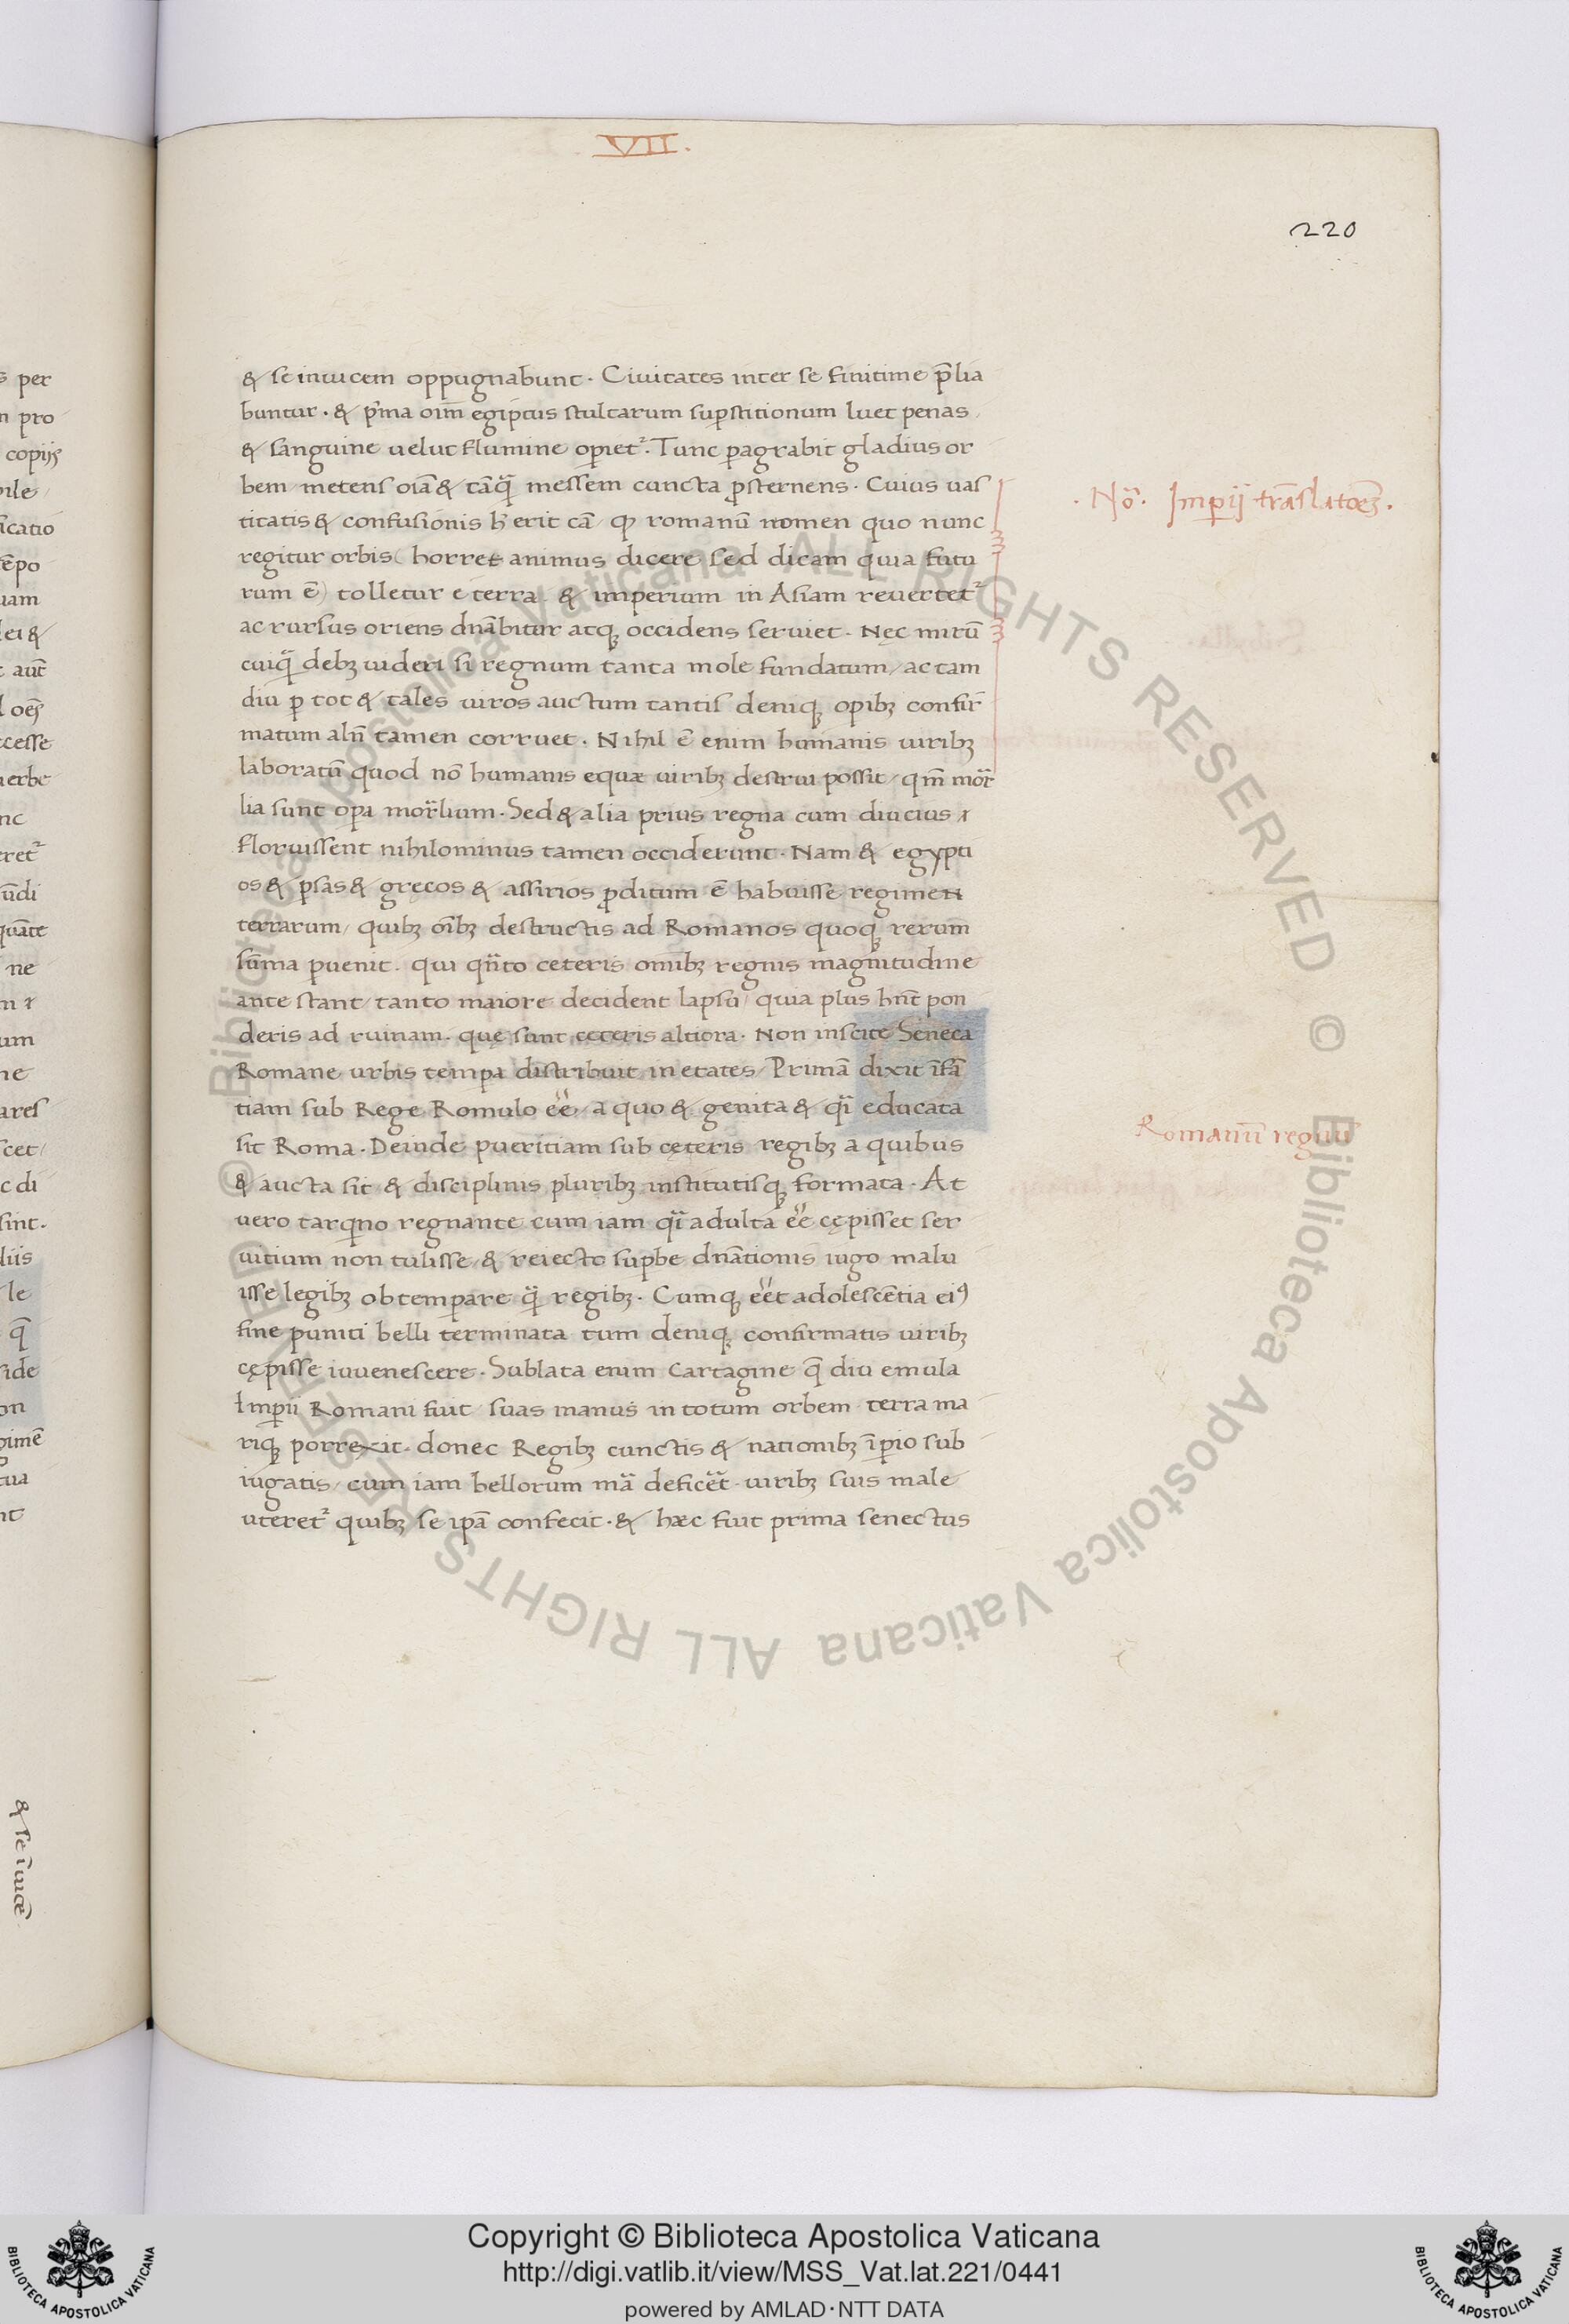 VII.
220
& se inuicem oppugnabunt. Ciuitates inter se finitime p̄lia
buntur. & p̓ma oīm egiptus stultarum sup̱stitionum luet penas
& sanguine uelut flumine op̱iet᷑. Tunc p̱agrabit gladius or
bem metens oīa & tāq̈ꝫ messem cuncta ꝓsternens. Cuius uas
titatis & confusionis h̄ erit cā ꝙ romanū nomen quo nunc
regitur orbis (horret animus dicere sed dicam quia futu
rum ē) tolletur e terra. & imperium in Asiam reuertet᷑
ac rursus oriens dn̄abitur atqꝫ occidens seruiet. Nec mirū
cuiq̈ꝫ debꝫ uideri si regnum tanta mole fundatum, ac tam
diu ꝑ tot & tales uiros auctum tantis deniqꝫ opibꝫ confir̄
matum aln̄ tamen corruet. Nihil ē enim humanis uiribꝫ
laboratū quod nō humanis equæ uiribꝫ destrui possit, qm̄ mor̈
lia sunt oꝑa mor̈lium. Sed & alia prius regna cum diucius
floruissent nihilominus tamen occiderunt. Nam & egypti
os & ꝑsas & gręcos & assirios ꝓditum ē habuisse regimen
terrarum, quibꝫ oībꝫ destructis ad Romanos quoqꝫ rerum
sūma ꝑuenit. qui qn̈to ceteris omībꝫ regnis magnitudine
ante stant, tanto maiore decident lapsu, quia plus hn̄t pon
deris ad ruinam. quę sunt ceteris altiora. Non inscite Seneca
Romane urbis temꝑa distribuit in etates, Primā dixit īfā
tiam sub Rege Romulo ee̋, a quo & genita & q̈i educata
sit Roma. Deinde pueritiam sub cęteris regibꝫ a quibus
& aucta sit & disciplinis pluribꝫ institutisqꝫ formata. At
uero tarqͥno regnante cum iam q̈i adulta ee̋ cępisset ser
uitium non tulisse, & reiecto suꝑbe dn̄ationis iugo malu
isse legibꝫ obtemꝑare q̈ꝫ regibꝫ. Cumqꝫ ee̋t adolescētia eiꝰ
fine puniti belli terminata tum deniqꝫ confirmatis uiribꝫ
cępisse iuuenescere. Sublata enim Cartagine q̄ diu emula
Imꝑii Romani fuit, suas manus in totum orbem terra ma
riqꝫ porrexit. donec Regibꝫ cunctis & nationibꝫ īꝑio sub
iugatis, cum iam bellorum mā̈ deficēt̋. uiribꝫ suis male
uteret᷑ quibꝫ se ip̄a confecit. & hæc fuit prima senectus
. Nō. Imꝑij trāslatōeꝫ.
Romanū regnū
s per
n pro
copijs
icatio
uam
lei &
t aut̄
l oēs
cesse
uerbe
nc
eret᷑
ūdi
quāte
ne
um
ne
ares
scet,
c di
sint.
liis
le
q̄
side
on
pimē
tua
nt
& se īuicē
© Biblioteca Apostolica Vaticana ALL RIGHTS RESERVED © Biblioteca Apostolica Vaticana ALL RIGHTS RESERVED
Copyright © Biblioteca Apostolica Vaticana
http://digi.vatlib.it/view/MSS_Vat.lat.221/0441
powered by AMLAD·NTT DATA
BIBLIOTECA APOSTOLICA VATICANA
BIBLIOTECA APOSTOLICA VATICANA